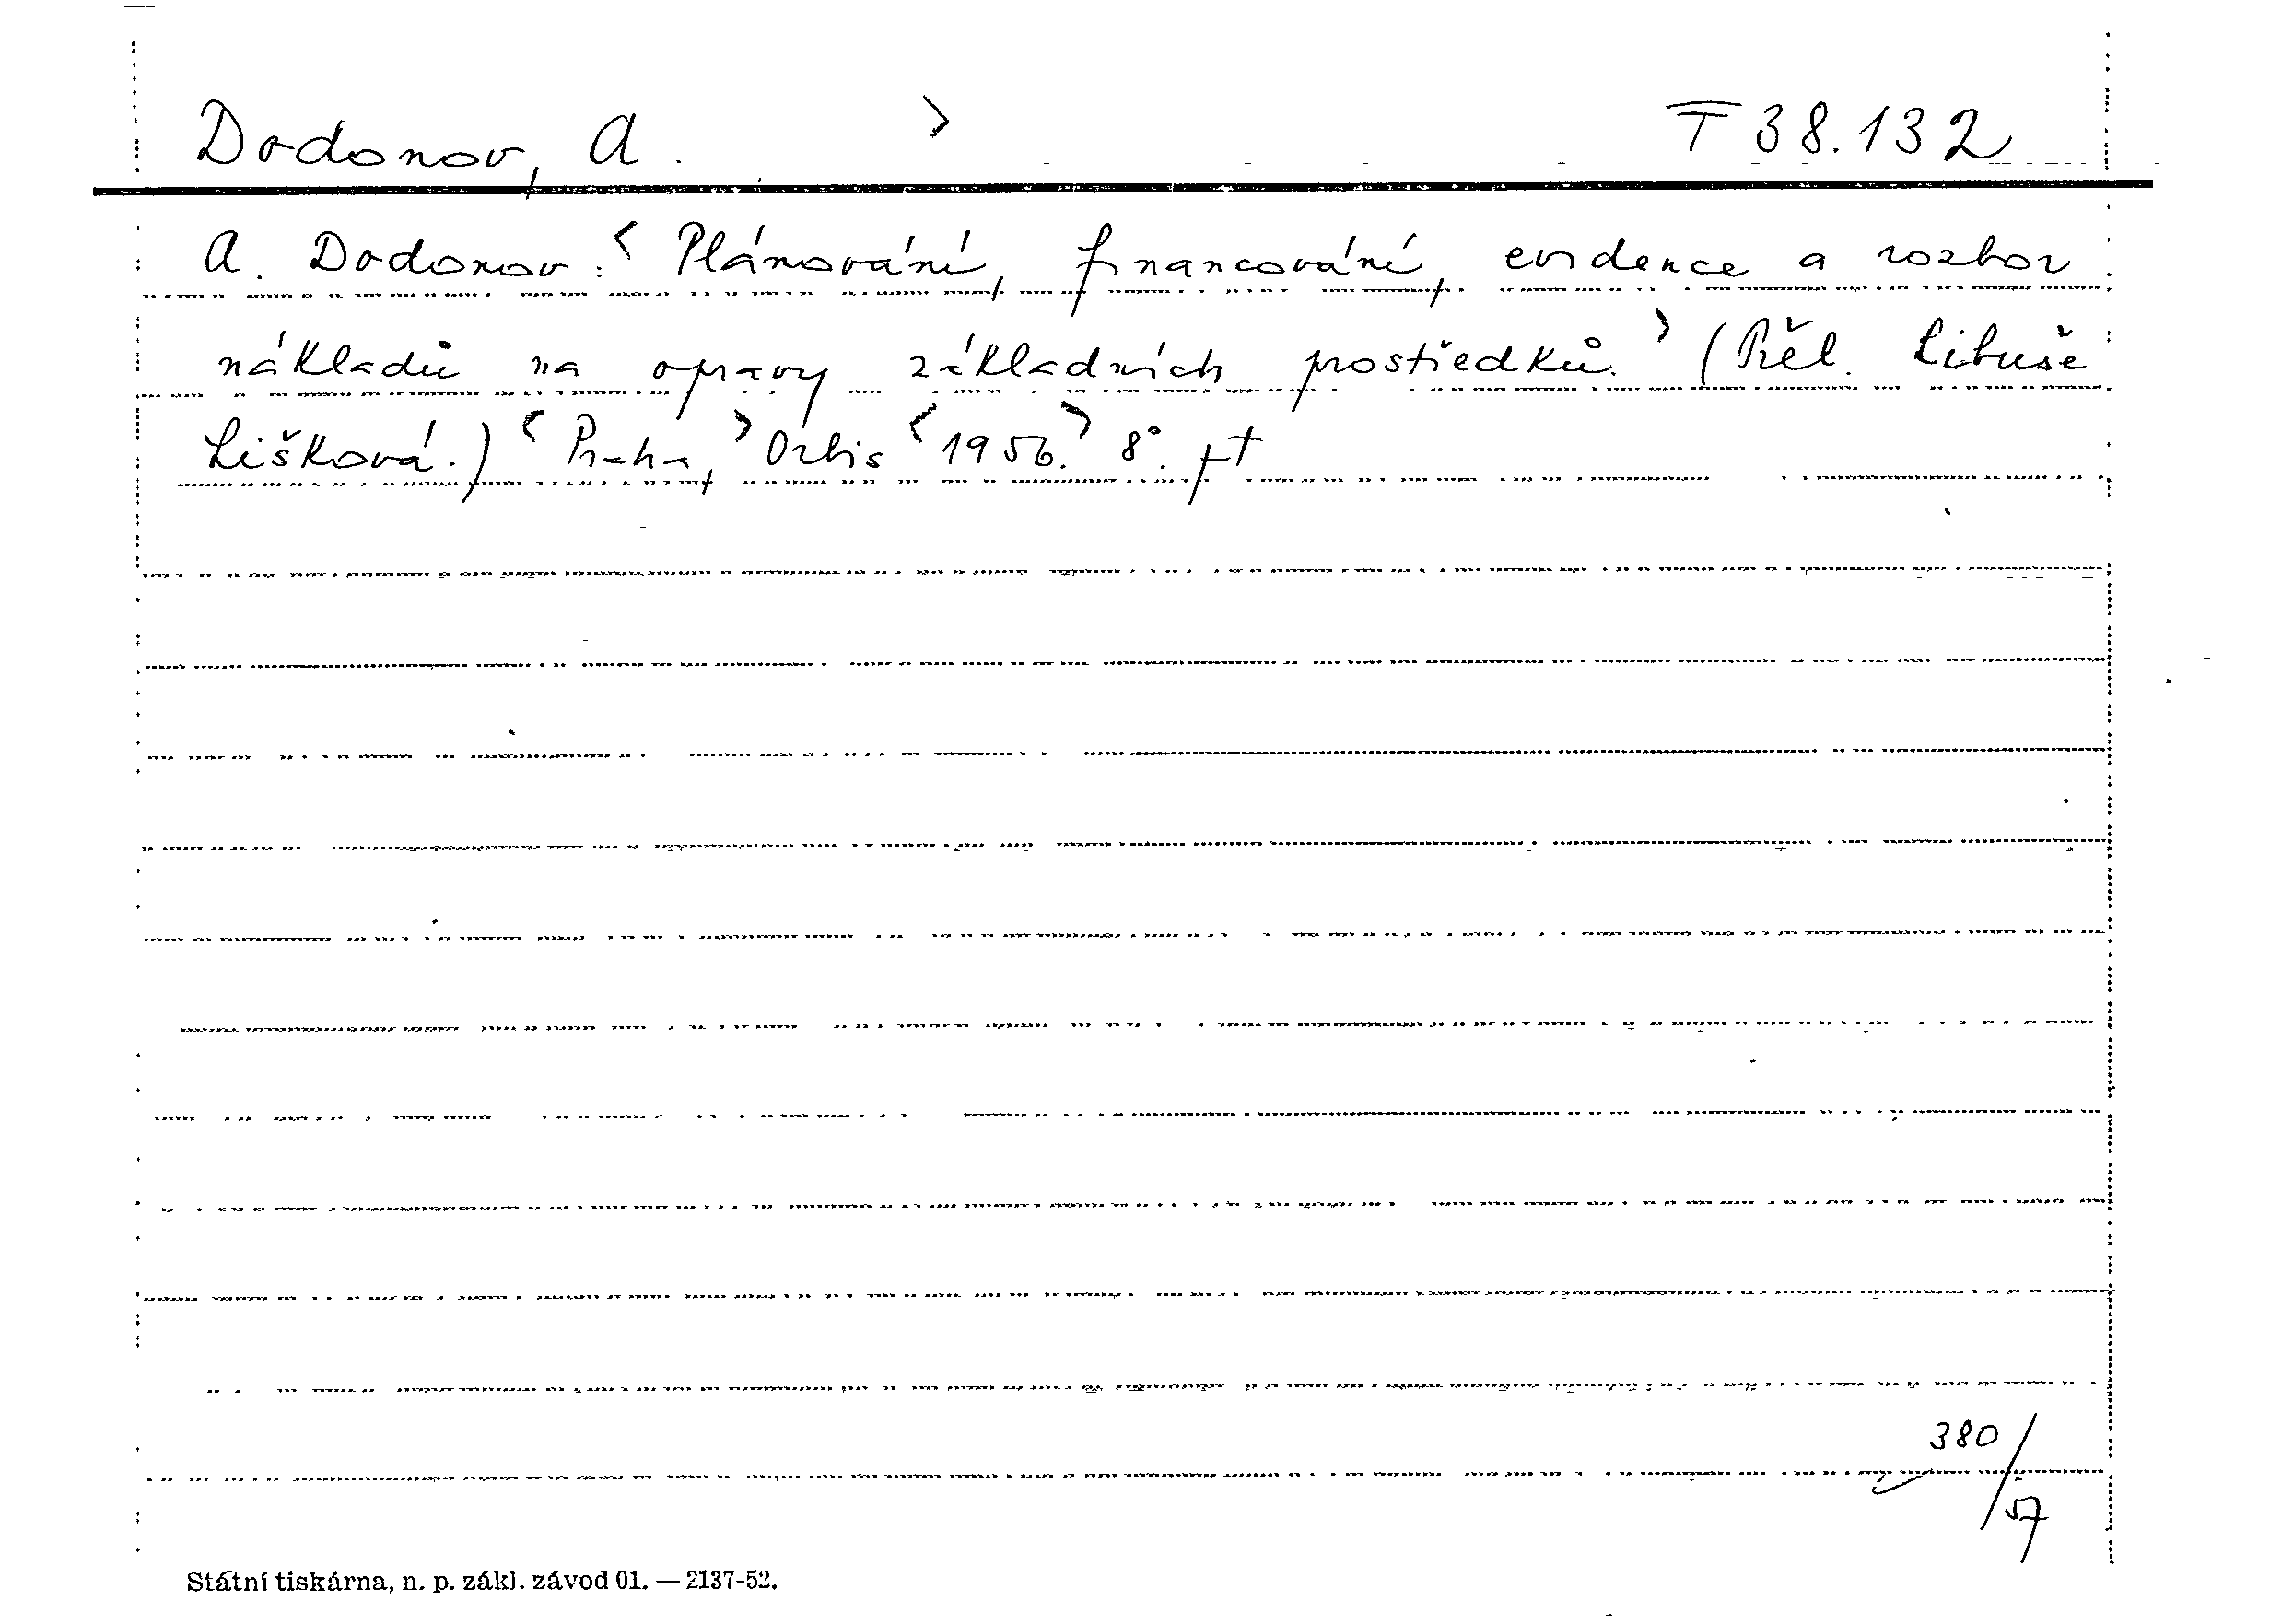 Dodonov, A. > T 38.132
A. Dodonov: < Plánování, financování, evidence a rozbor
nákladů na opravy základních prostředků. > (Přel. Libuše
Lišková.) < Praha, > Orbis < 1956. > 8°.
380/
57
Státní tiskárna, n. p. zákl. závod 01. — 2137-52.